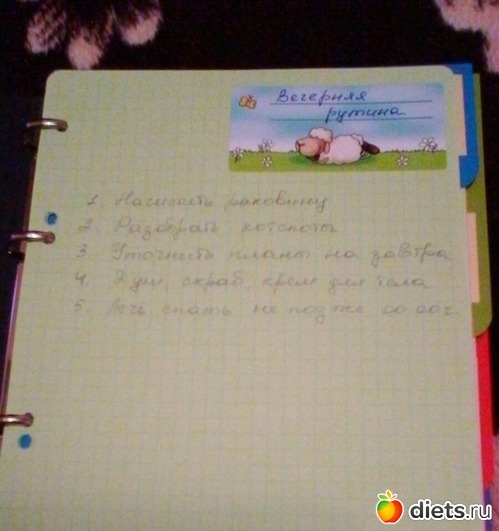 Вечерняя
рутина
1. Начистить раковину
2. Разобрать хотспоты
3. Уточнить планы на завтра
4. Душ, скраб, крем для тела
5. Лечь спать не позже 00.00 ч.
diets.ru